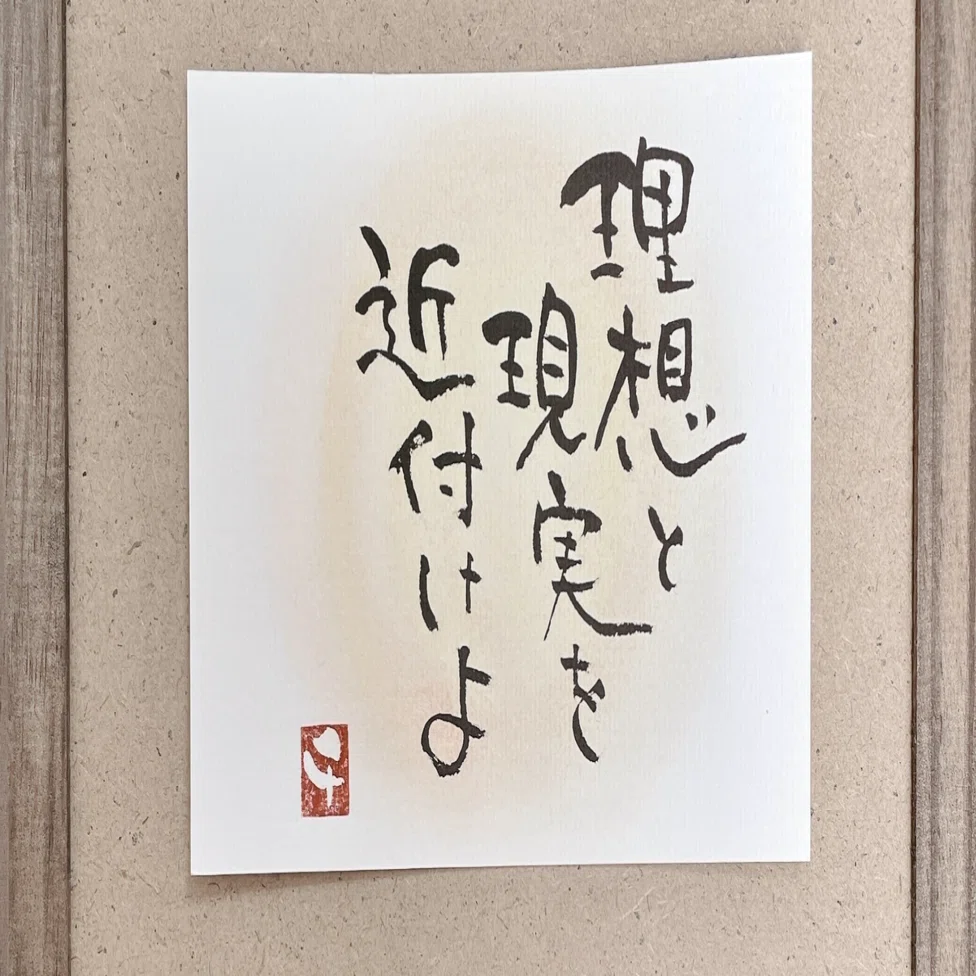 理想と
現実を
近付けよ